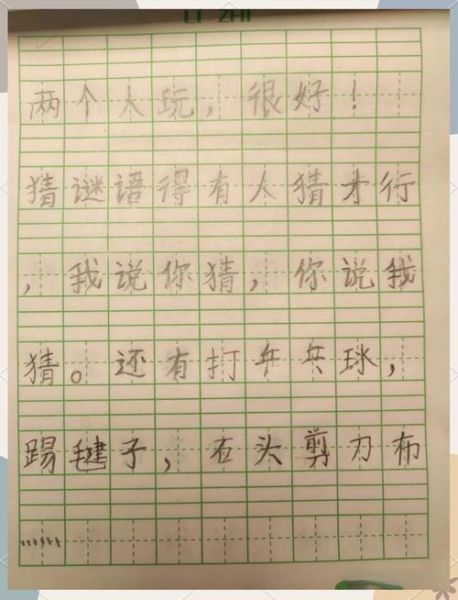 LI ZHI
两个人玩，很好！
猜谜语得有人猜才行
，我说你猜，你说我
猜。还有打乒乓球，
踢毽子，石头剪刀布
……